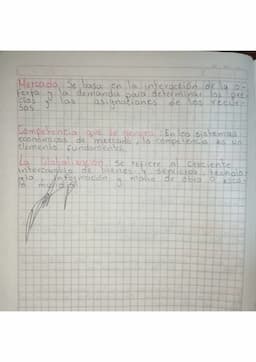 Mercado: Se basa en la interacción de la o-
ferta y la demanda para determinar los pre-
cios y las asignaciones de los recur-
sos.
Competencia que le genera: En los sistemas
económicos de mercado, la competencia es un
elemento fundamental.
La Globalización: Se refiere al creciente
intercambio de bienes y servicios, tecnolo
gía, información y mano de obra a esca
la mundial